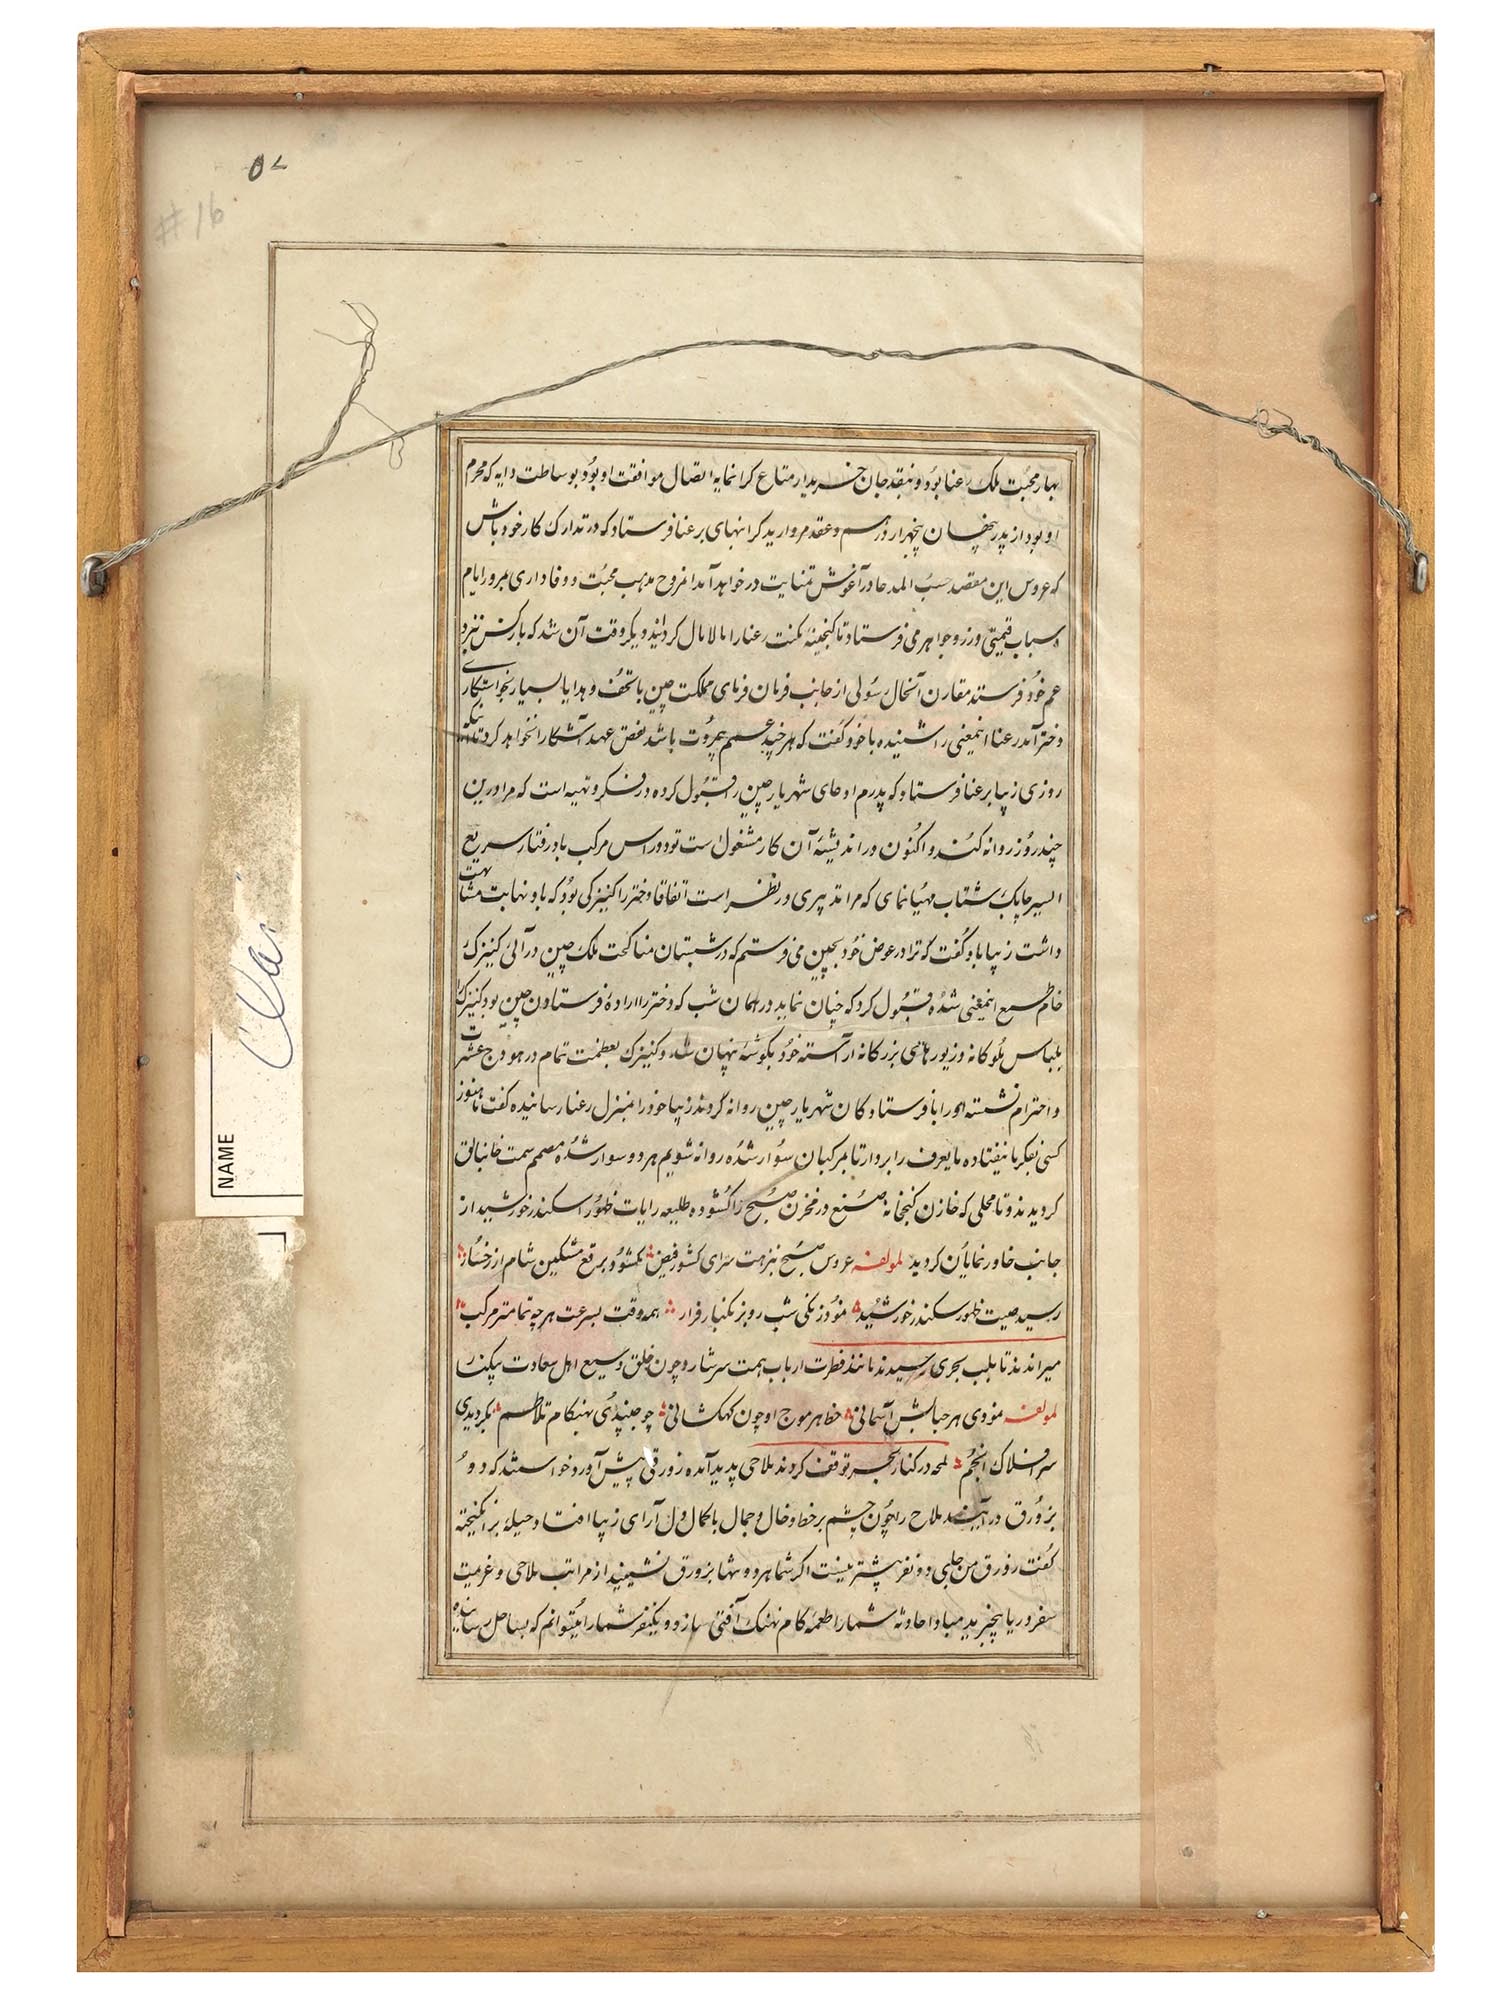 ۵۷
#16
بهار محبت ملک رعنا بود و بنقد جان خریدار متاع کرانمایه اتصال موافقت او بود و بوساطت دایه که محرم
او بود از پدر پنهان پنجهزار درسم و عقد مروارید کرانبهای برعنا فرستاد که در تدارک کار خود باش
که عروس این مقصد حسب المدعا در آغوش تمنایت در خواهد آمد مذهب محبت و وفاداری بمرور ایام
اسباب قیمتی و زر و جواهر می فرستاد تا کنجینهٔ مکنت رعنا را مالامال کرداند و یکروقت آن شد که بار کس نزد
عم خود فرستد مقارن آنحال رسولی از جانب فرمان فرمای مملکت چین با تحف و هدایا بسیار بخواستکاری
دختر آمد رعنا اینمعنی را شنیده با خود کفت که هر چند عمم بیمروت باشد نقض عهد آشکارا نخواهد کرد تا آنکه
روزی زیبا برعنا فرستاد که پدرم ادعای شهریار چین را قبول کرده در فکر و تهیه است که مرا درین
چند روز روانه کند و اکنون در اندیشهٔ آن کار مشغول است تو دو راس مرکب بادرفتار سریع
السیر چابک شتاب مهیا نمای که مرا تدبیری در نظر است اتفاقا دختر را کنیزکی بود که باو نهایت مشابهت
داشت زیبا باو کفت که ترا در عوض خود بچین می فرستم که در شبستان مناکحت ملک چین در آئی کنیزک
خاطر جمع اینمعنی شده قبول کرد که چنان نماید در همان شب که دختر را اراده فرستادن چین بود کنیزک را
بلباس ملوکانه و زیورهای بزرکانه آراسته خود بکوشهٔ پنهان شد و کنیزک بعظمت تمام در هودج عشرت
و احترام نشسته او را با فرستادکان شهریار چین روانه کردند زیبا خود را بمنزل رعنا رسانیده کفت تا هنوز
کسی بفکر ما نیفتاده ما یعرف را بردار تا بر مرکبان سوار شده روانه شویم هر دو سوار شده مصمم سمت خانبالق
کردیدند و تا محلی که خازن کنجخانه صنع در مخزن صبح را کشوده طلیعه رایات ظهور اسکندر خورشید از
جانب خاور نمایان کردید لمولفه عروس صبح بنزهت سرای کشور فیض بکشود برقع مشکین شام از رخسار
رسید صیت ظهور سکندر خورشید نمود زنکی شب رو بزنکبار فرار همه وقت بسرعت هر چه تمامتر مرکب
میراندند تا بلب بحری رسیدند مانند فطرت ارباب همت سرشار و چون خلق وسیع اهل سعادت بیکنار
لمولفه نمودی هر حبابش آسمانی خط هر موج او چون کهکشانی چو جنبیدی بهنکام تلاطم بکردیدی
سر افلاک انجم لمحه در کنار بحر توقف کردند ملاحی پدید آمده زورقی پیش آورد خواستند که دو
بزورق در آیند ملاح را چون چشم بر خط و خال و جمال با کمال دل آرای زیبا افتاد حیلهٔ برانکیخته
کفت زورق من جای دو نفر بیشتر نیست اکر شما هر دو تنها بزورق نشینید از مراتب ملاحی و غرمیت
سفر دریا بیخبرید مبادا حادثه شما را طعمهٔ کام نهنک آفتی سازد و یکنفر شما را میتوانم که بساحل رسانیده
NAME